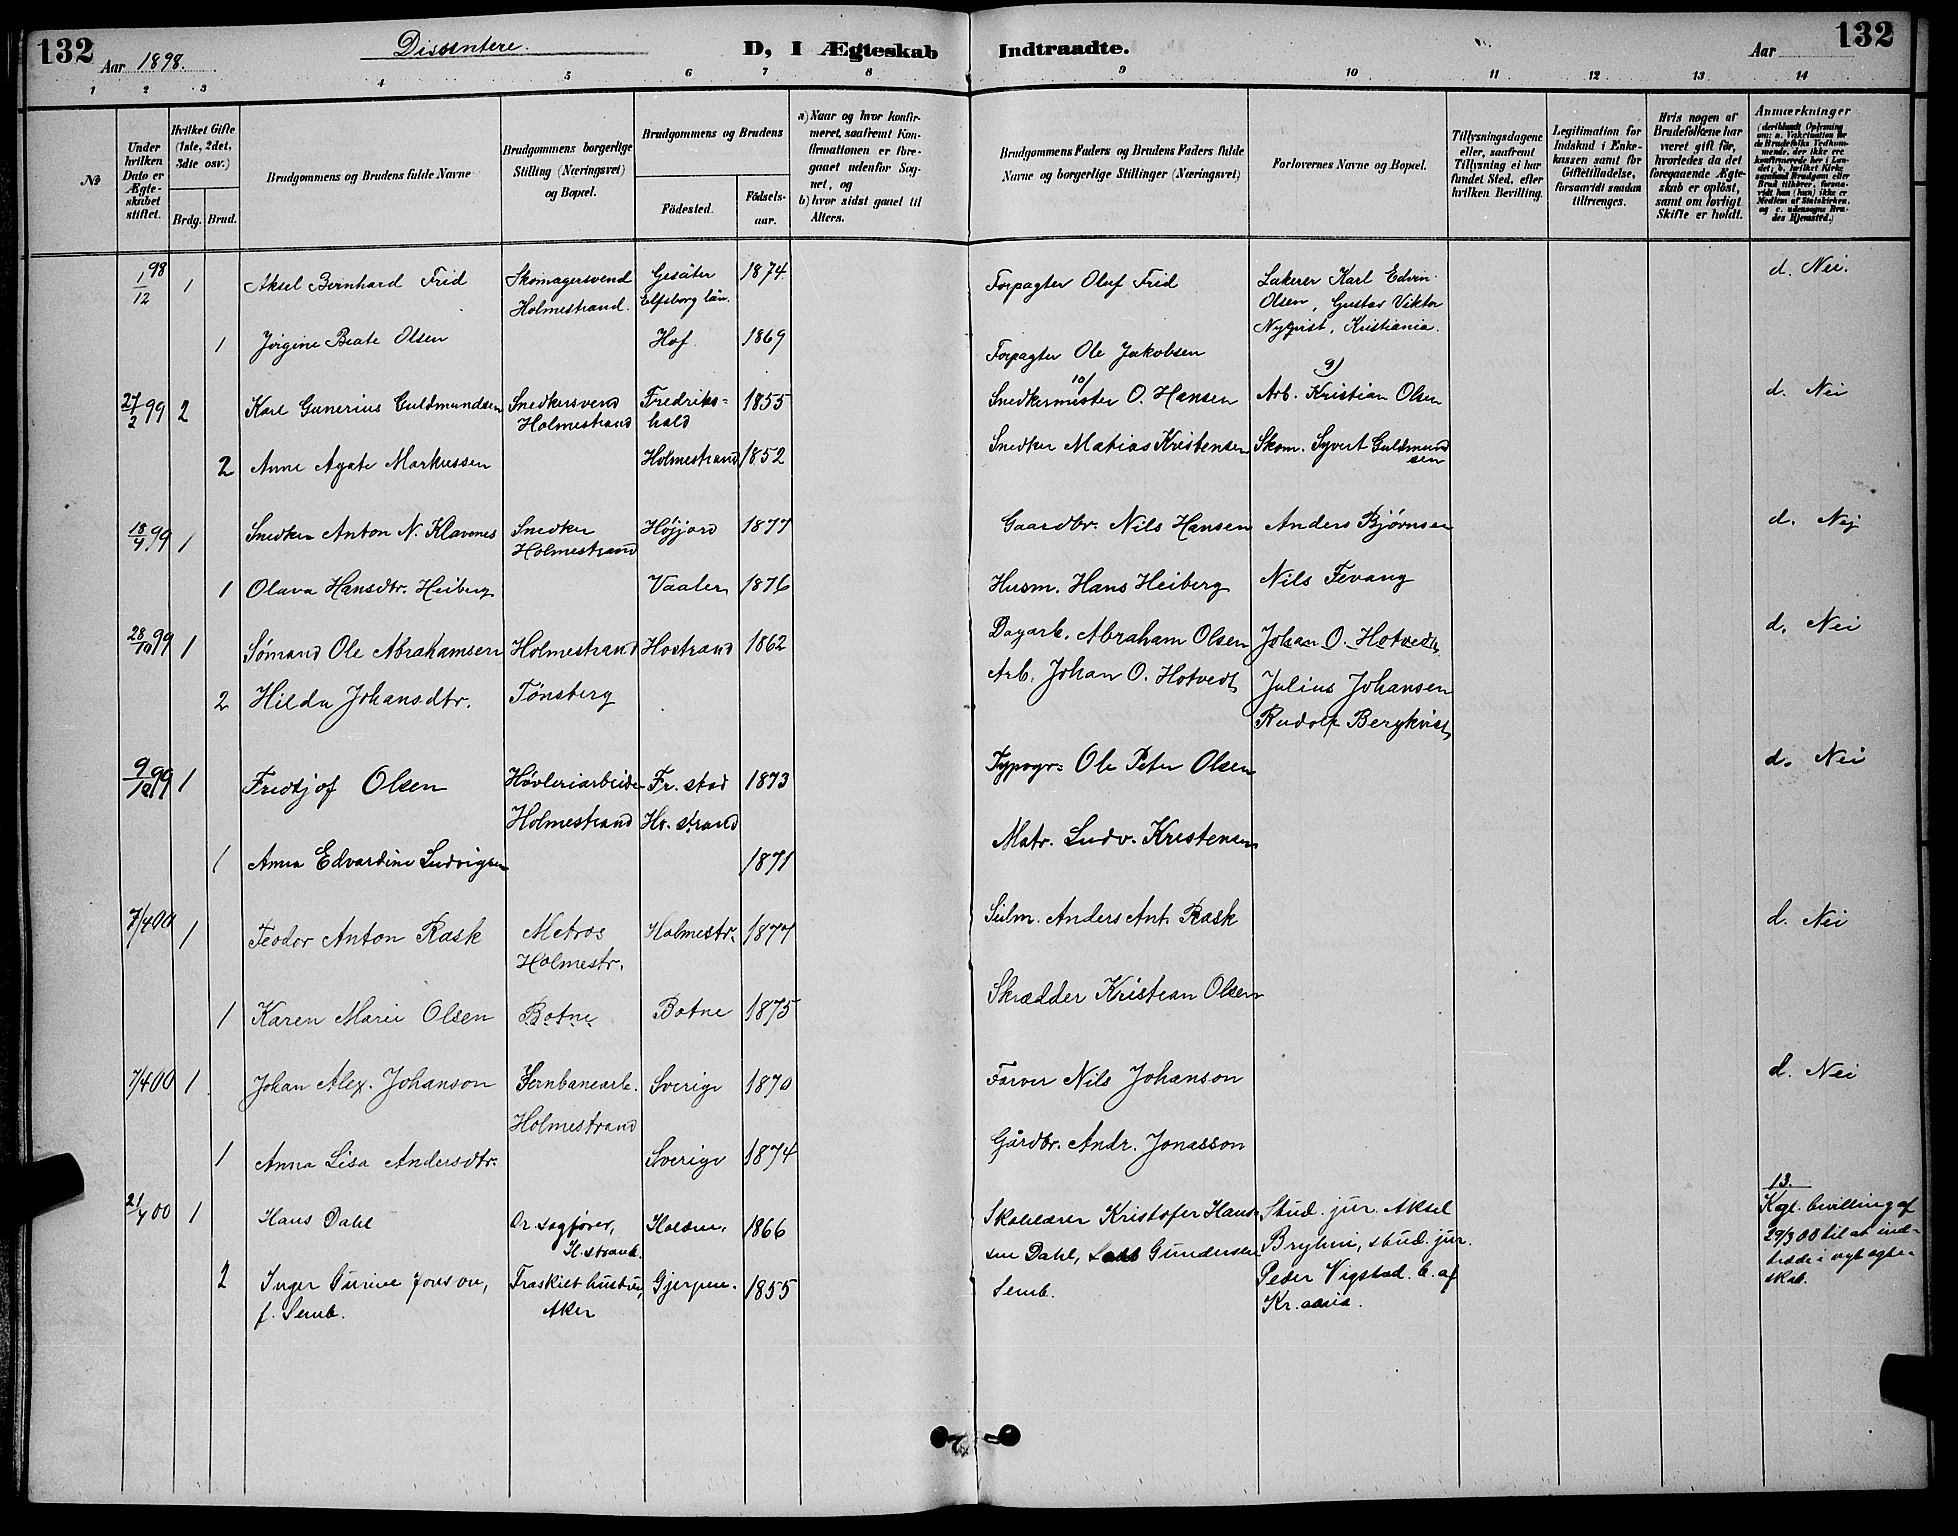 132 Aar 1898. Dissentere. D, I Ægteskab Indtraadte. Aar 132
1 2 3 4 5 6 7 8 9 10 11 12 13 14
No
Under hvilken Dato er Ægteskabet stiftet.
Hvilket Gifte (1ste, 2det, 3die osv.)
Brdg. Brud.
Brudgommens og Brudens fulde Navne
Brudgommens borgerlige Stilling (Næringsvei) og Bopæl.
Brudgommens og Brudens
Fødested. Fødselsaar.
a) Naar og hvor konfirmeret, saafremt Konfirmationen er foregaaet udenfor Sognet, og
b) hvor sidst gaaet til Alters.
Brudgommens Faders og Brudens Faders fulde Navne og borgerlige Stillinger (Næringsvei)
Forlovernes Navne og Bopæl.
Tillysningsdagene eller, saafremt Tillysning ei har fundet Sted, efter hvilken Bevilling.
Legitimation for Indskud i Enkekassen samt for Giftetilladelse, forsaavidt saadan tiltrænges.
Hvis nogen af Brudefolkene har været gift før, hvorledes da det foregaaende Ægteskab er opløst, samt om lovligt Skifte er holdt.
Anmærkninger (deriblandt Oplysning om: a. Vakcination for de Brudefolks Vedkommende, der ikke ere konfirmerede her i Landet, b. hvilket Kirkesamfund Brudgom eller Brud tilhører, forsaavidt han (hun) ikke er Medlem af Statskirken, og c. udensogns Brudes Hjemsted.)
1/12 98 1 Aksel Bernhard Frid Skomagersvend Gesäter 1874 Forpagter Oluf Frid Lakerer Karl Edvin d. Nei.
Holmestrand. Elfsborg län. Olsen, Gustav Viktor
Nyqvist, Kristiania.
1 Jørgine Beate Olsen Hof 1869 Forpagter Ole Jakobsen
10) 9)
27/2 99 2 Karl Gunerius Guldmundsen Snedkersvend Fredriks= 1855 Snedkermester O. Hansen Arb. Kristian Olsen d. Nei
Holmestrand hald
2 Anne Agate Markussen Holmestrand 1852 Snedker Matias Kristensen Skom. Syvert Guldmund
sen
18/4 99 1 Snedker Anton N. Klavenes Snedker Høijord 1877 Gaardbr. Nils Hansen Anders Bjørnsen d. Nej
Holmestrand
1 Olava Hansdtr. Heiberg Vaaler 1876 Husm. Hans Heiberg Nils Fevang
28/10 99 1 Sømand Ole Abrahamsen Holmestrand Hostrand 1862 Dagarb. Abraham Olsen Johan O. Hotvedt d. Nei
2 Hilda Johansdtr. Tønsberg Arb. Johan O. Hotvedt Julius Johansen
Rudolf Bergkvist
9/12 99 1 Fredtjof Olsen Høvleriarbeider Fr. stad 1873 Typogr. Ole Peter Olsen d. Nei
Holmestrand Ho. strand
1 Anna Edvardine Ludvigsen 1871 Matr. Ludv. Kristensen
7/4 00 1 Teodor Anton Rask Matros Holmestr. 1877 Seilm. Anders Ant. Rask d. Nei
Holmestr.
1 Karen Marie Olsen Botne Botne 1875 Skrædder Kristian Olsen
7/4 00 1 Johan Alex. Johanson Jernbanearb. Sverige 1870 Farver Nils Johanson d. Nei
Holmestrand
1 Anna Lisa Andersdtr. Sverige 1874 Gårdbr. Andr. Jonasson
13.
21/4 00 1 Hans Dahl Or. sagfører, 1866 Skolelærer Kristofer Han= Stud. jur. Aksel Kgl. bevilling af
H. strand. sen Dahl, Gundersen Bryhni, stud. jur. 29/3 00 til at ind=
2 Inger Jonson, Fraskilt hustru, Gjerpen. 1855 Semb. Peder Vigstad. b. af træde i nyt ægte=
f. Semb. Aker Kr.ania. skab.